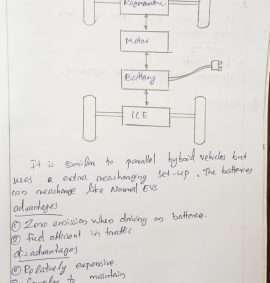 Motor
Battery
ICE
It is similar to parallel hybrid vehicles but
uses a extra recharging set-up. The batteries
can recharge like Normal EVs
advantages
① Zero emission when driving on batterie.
② Fuel efficient in traffic
disadvantages
① Relatively expensive
② Complex to maintain